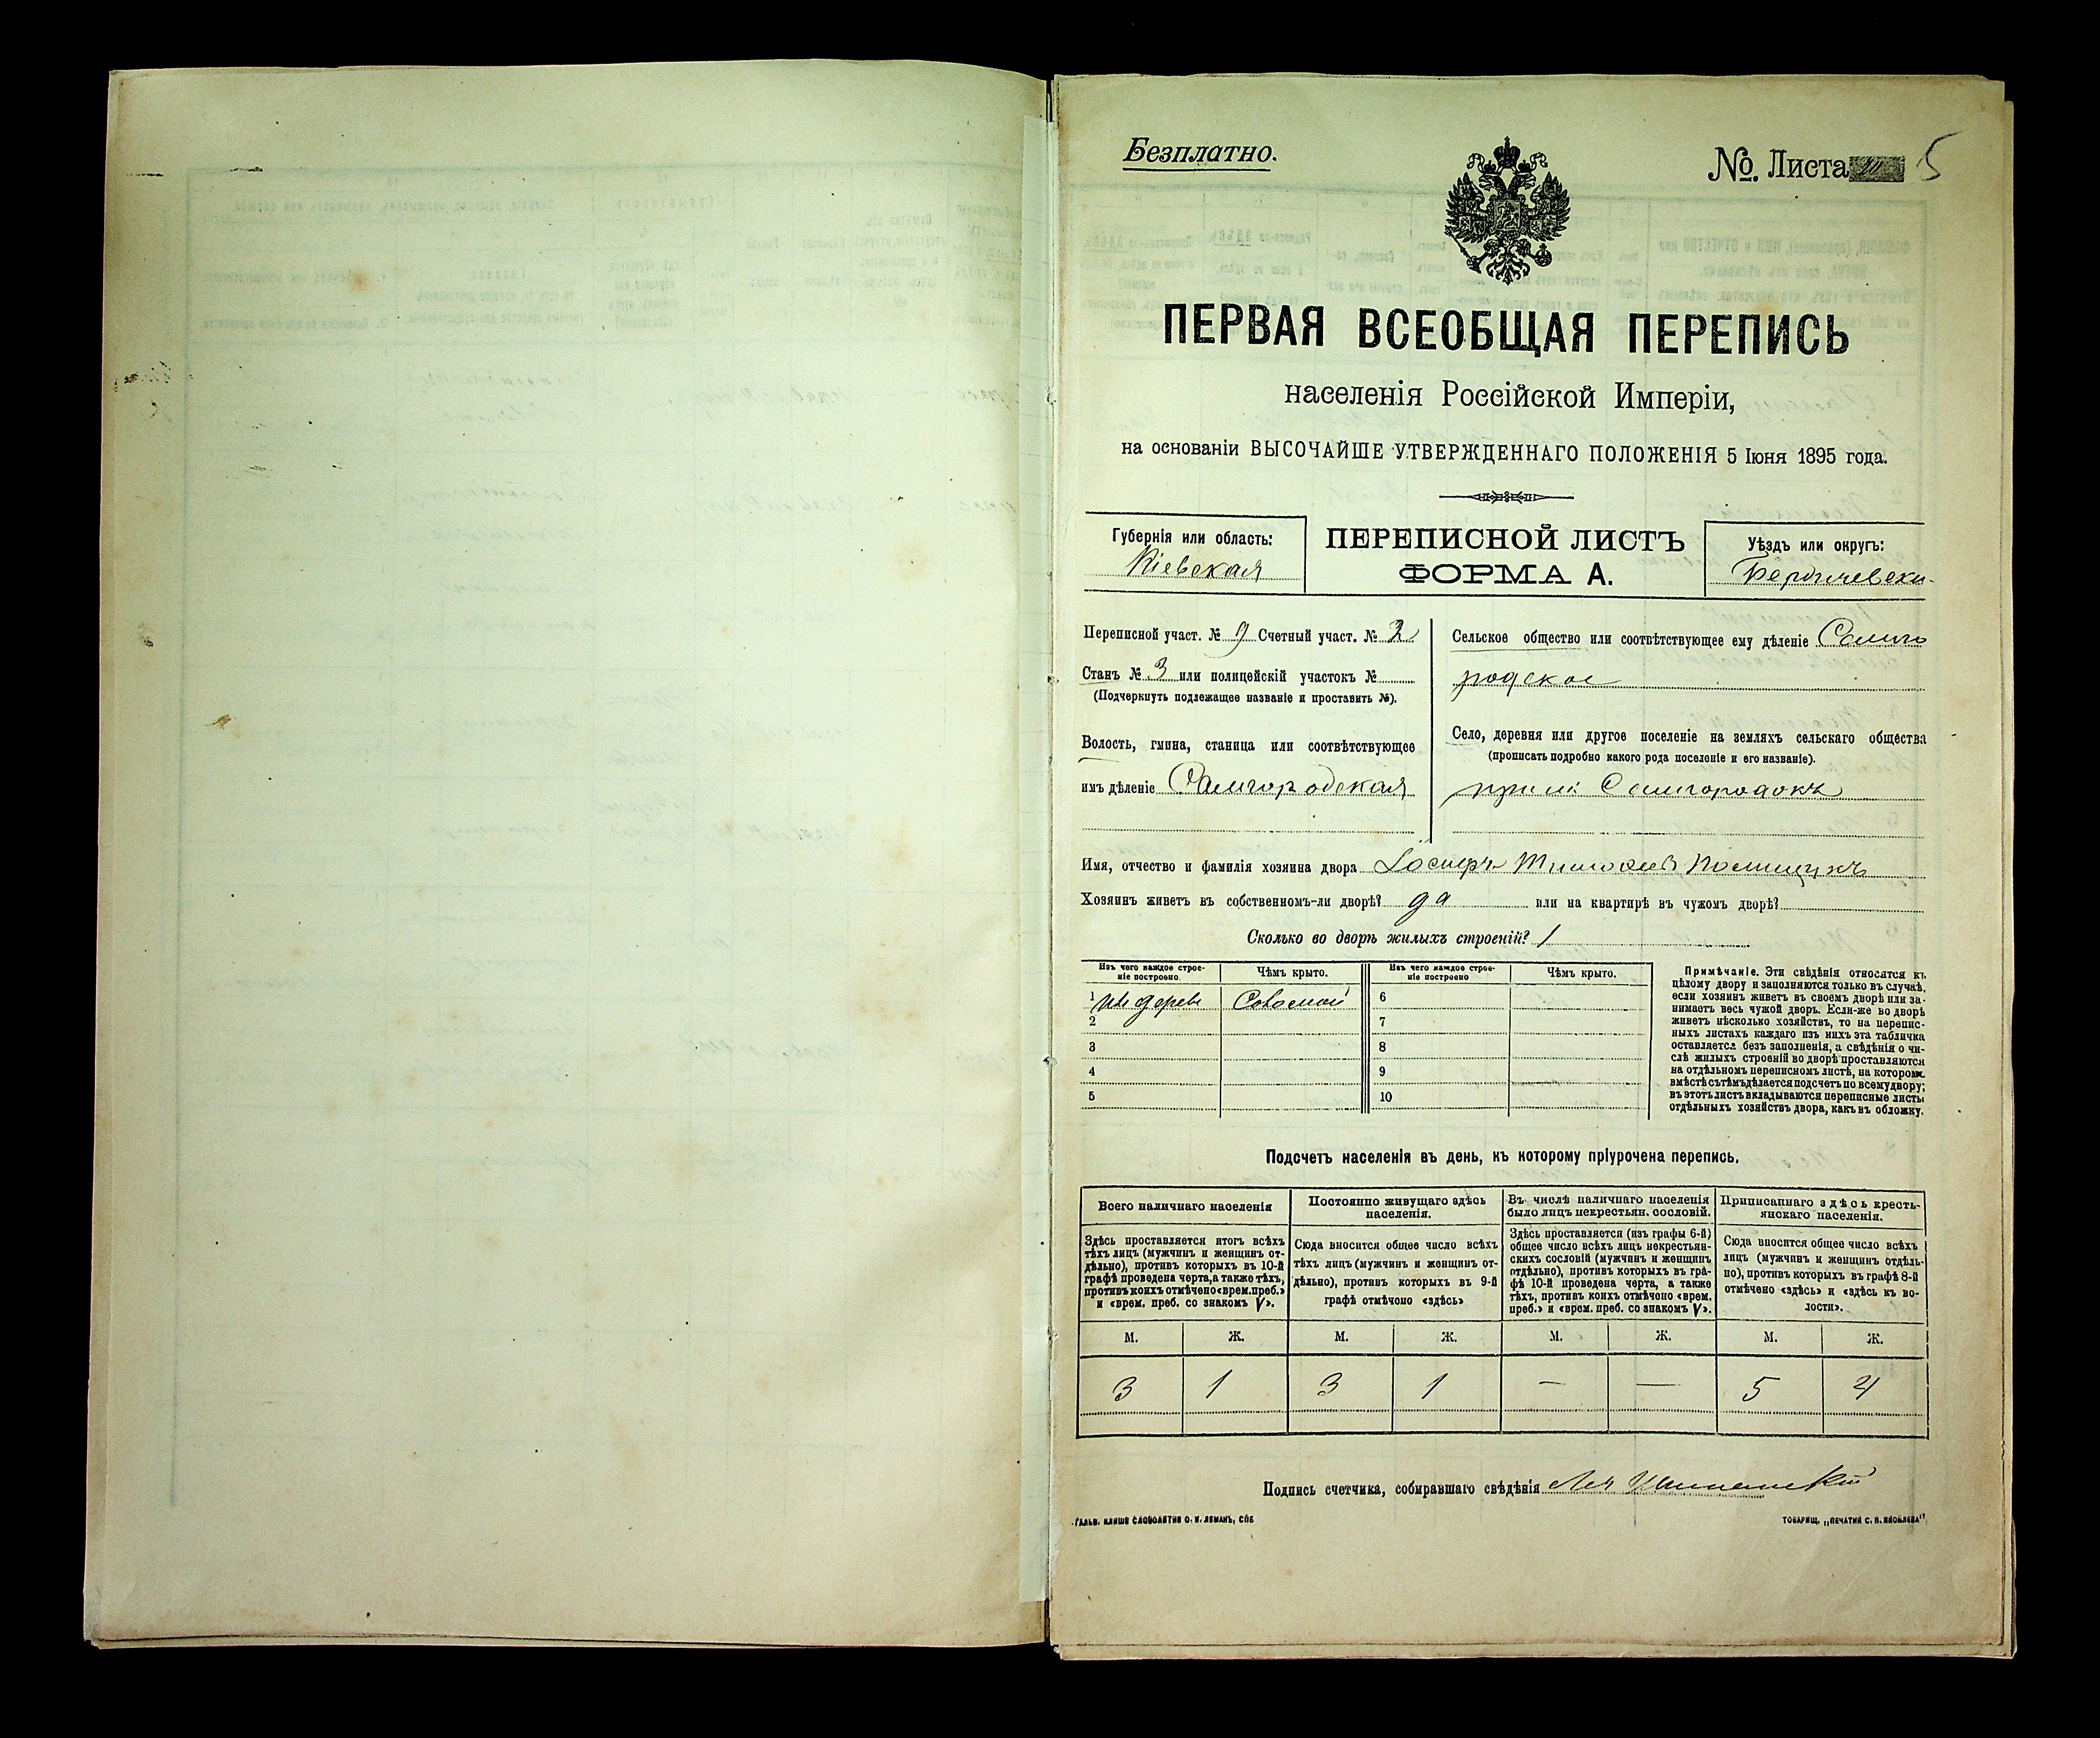 Безплатно.
№. Листа 5
ПЕРВАЯ ВСЕОБЩАЯ ПЕРЕПИСЬ
населенія Россійской Имперіи,
на основаніи ВЫСОЧАЙШЕ УТВЕРЖДЕННАГО ПОЛОЖЕНІЯ 5 Іюня 1895 года.
Губернія или область:
Кіевская
ПЕРЕПИСНОЙ ЛИСТЪ
ФОРМА А.
Уѣздъ или округъ:
Бердичевски
Переписной участ. № 9 Счетный участ. № 2
Станъ № 3 или полицейскій участокъ №
(Подчеркнуть подлежащее названіе и проставить №).
Волость, гмина, станица или соотвѣтствующее
имъ дѣленіе Самгородская
Сельское общество или соотвѣтствующее ему дѣленіе Самго
родское
Село, деревня или другое поселеніе на земляхъ сельскаго общества
(прописать подробно какого рода поселеніе и его названіе).
при м: Самгородокъ
Имя, отчество и фамилія хозяина двора Іосифъ
Хозяинъ живетъ въ собственномъ-ли дворѣ? да или на квартирѣ въ чужомъ дворѣ?
Сколько во дворѣ жилыхъ строеній? 1
Изъ чего каждое строе-
ніе построено
Чѣмъ крыто.
Изъ чего каждое строе-
ніе построено
Чѣмъ крыто.
1 изъ дерева Соломой 6
2 7
3 8
4 9
5 10
Примѣчаніе. Эти свѣдѣнія относятся къ
цѣлому двору и заполняются только въ случаѣ,
если хозяинъ живетъ въ своемъ дворѣ или за-
нимаетъ весь чужой дворъ. Если-же во дворѣ
живетъ нѣсколько хозяйствъ, то на перепис-
ныхъ листахъ каждаго изъ нихъ эта табличка
оставляется безъ заполненія, а свѣдѣнія о чи-
слѣ жилыхъ строеній во дворѣ проставляются
на отдѣльномъ переписномъ листѣ, на которомъ
вмѣстѣ съ тѣмъ дѣлается подсчетъ по всему двору;
въ этотъ листъ вкладываются переписные листы
отдѣльныхъ хозяйствъ двора, какъ въ обложку.
Подсчетъ населенія въ день, къ которому пріурочена перепись.
Всего наличнаго населенія
Здѣсь проставляется итогъ всѣхъ
тѣхъ лицъ (мужчинъ и женщинъ от-
дѣльно), противъ которыхъ въ 10-й
графѣ проведена черта, а также тѣхъ,
противъ коихъ отмѣчено «врем. преб.»
и «врем. преб. со знакомъ V».
Постоянно живущаго здѣсь
населенія.
Сюда вносится общее число всѣхъ
тѣхъ лицъ (мужчинъ и женщинъ от-
дѣльно), противъ которыхъ въ 9-й
графѣ отмѣчено «здѣсь»
Въ числѣ наличнаго населенія
было лицъ некрестьян. сословій.
Здѣсь проставляется (изъ графы 6-й)
общее число всѣхъ лицъ некрестьян-
скихъ сословій (мужчинъ и женщинъ
отдѣльно), противъ которыхъ въ гра-
фѣ 10-й проведена черта, а также
тѣхъ, противъ коихъ отмѣчено «врем.
преб.» и «врем. преб. со знакомъ V».
Приписаннаго здѣсь кресть-
янскаго населенія.
Сюда вносится общее число всѣхъ
лицъ (мужчинъ и женщинъ отдѣль-
но), противъ которыхъ въ графѣ 8-й
отмѣчено «здѣсь» и «здѣсь къ во-
лости».
М. Ж. М. Ж. М. Ж. М. Ж.
3 1 3 1 — — 5 4
Подпись счетчика, собиравшаго свѣдѣнія
ГАЛЬВ. КЛИШЕ СЛОВОЛИТНИ О. И. ЛЕМАНЪ, СПБ
ТОВАРИЩ. „ПЕЧАТНИ С. П. ЯКОВЛЕВА"